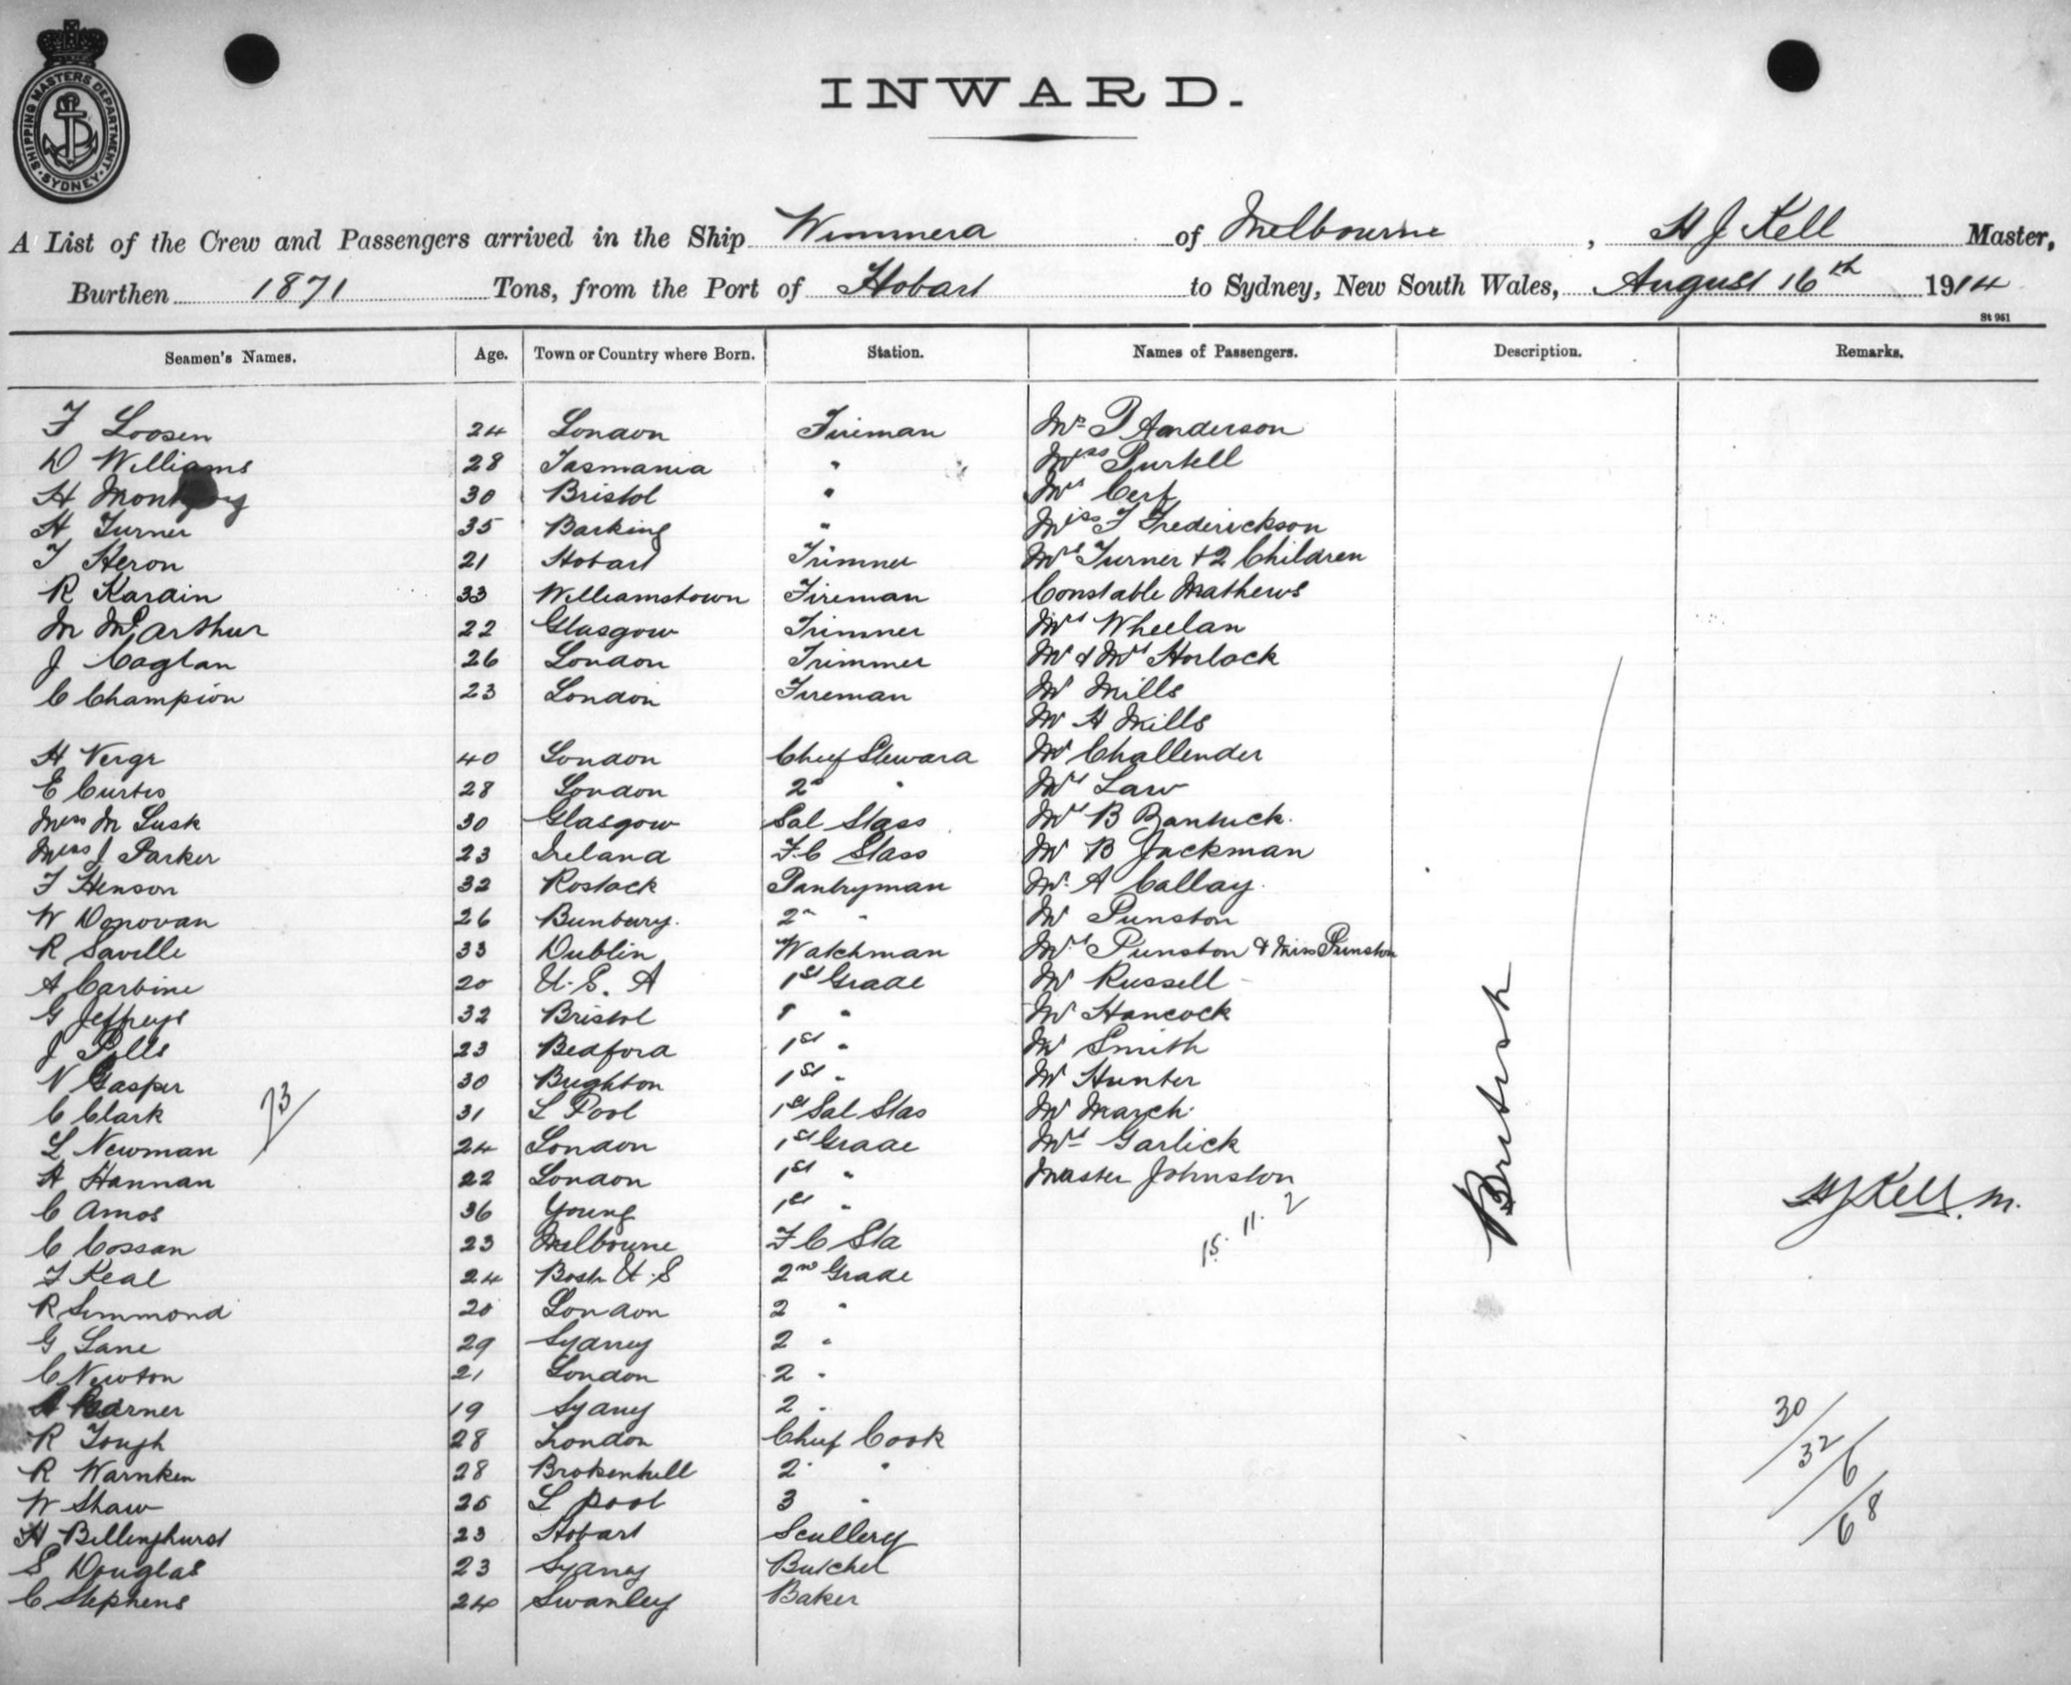 SHIPPING MASTERS DEPARTMENT · SYDNEY ·
INWARD.
A List of the Crew and Passengers arrived in the Ship Wimmera of Melbourne, H J Kell Master,
Burthen 1871 Tons, from the Port of Hobart to Sydney, New South Wales, August 16th 1914
St 951
Seamen's Names. Age. Town or Country where Born. Station. Names of Passengers. Description. Remarks.
F Loosen 24 London Fireman Mrs P Anderson
D Williams 28 Tasmania " Miss Purtell
H 30 Bristol " Mrs Cerf
H Turner 35 Barking " Miss F Frederickson
T Heron 21 Hobart Trimmer Mrs Turner + 2 Children
R Kardin 33 Williamstown Fireman Constable Mathews
M McArthur 22 Glasgow Trimmer Mrs Wheelan
J Coglan 26 London Trimmer Mr & Mrs Horlock
C Champion 23 London Fireman Mr Mills
Mr H Mills
H Verge 40 London Chief Steward Mr Challender
E Curtis 28 London 2nd " Mrs Law
Miss M Lusk 30 Glasgow Sal Stass Mrs B
Miss J Parker 23 Ireland F.C Stass Mr B Jackman
F Henson 32 Rostock Pantryman Mr A Callay.
W Donovan 26 Bunbury. 2nd " Mr Punston
R Saville 33 Dublin Watchman Mrs Punston & Miss Punston
A Carbine 20 U.S.A 1st Grade Mr Russell
G Jeffreys 32 Bristol " " Mr Hancock
J Pells 23 Bedford 1st " Mr Smith
N Gasper 30 Brighton 1st " Mr Hunter
C Clark 31 L Pool 1st Sal Stas Mr March
L Newman 24 London 1st Grade Mrs Garlick
A Hannan 22 London 1st " Master Johnston
C Amos 36 Young 1st "
C Cossan 23 Melbourne F C Sta
F Keal 24 Bosh U.S 2nd Grade
R Simmond 20 London 2 "
G Lane 29 Sydney 2 "
C Newton 21 London 2 "
19 Sydney 2 "
R Tough 28 London Chief Cook
R Warnken 28 Brokenhill 2 "
W Shaw 25 L Pool 3 "
H Billinghurst 23 Hobart Scullery
S Douglas 23 Sydney Butcher
C Stephens 24 Swanley Baker
73
15. 11. 2
British
H J Kell. M.
30
32/6
68